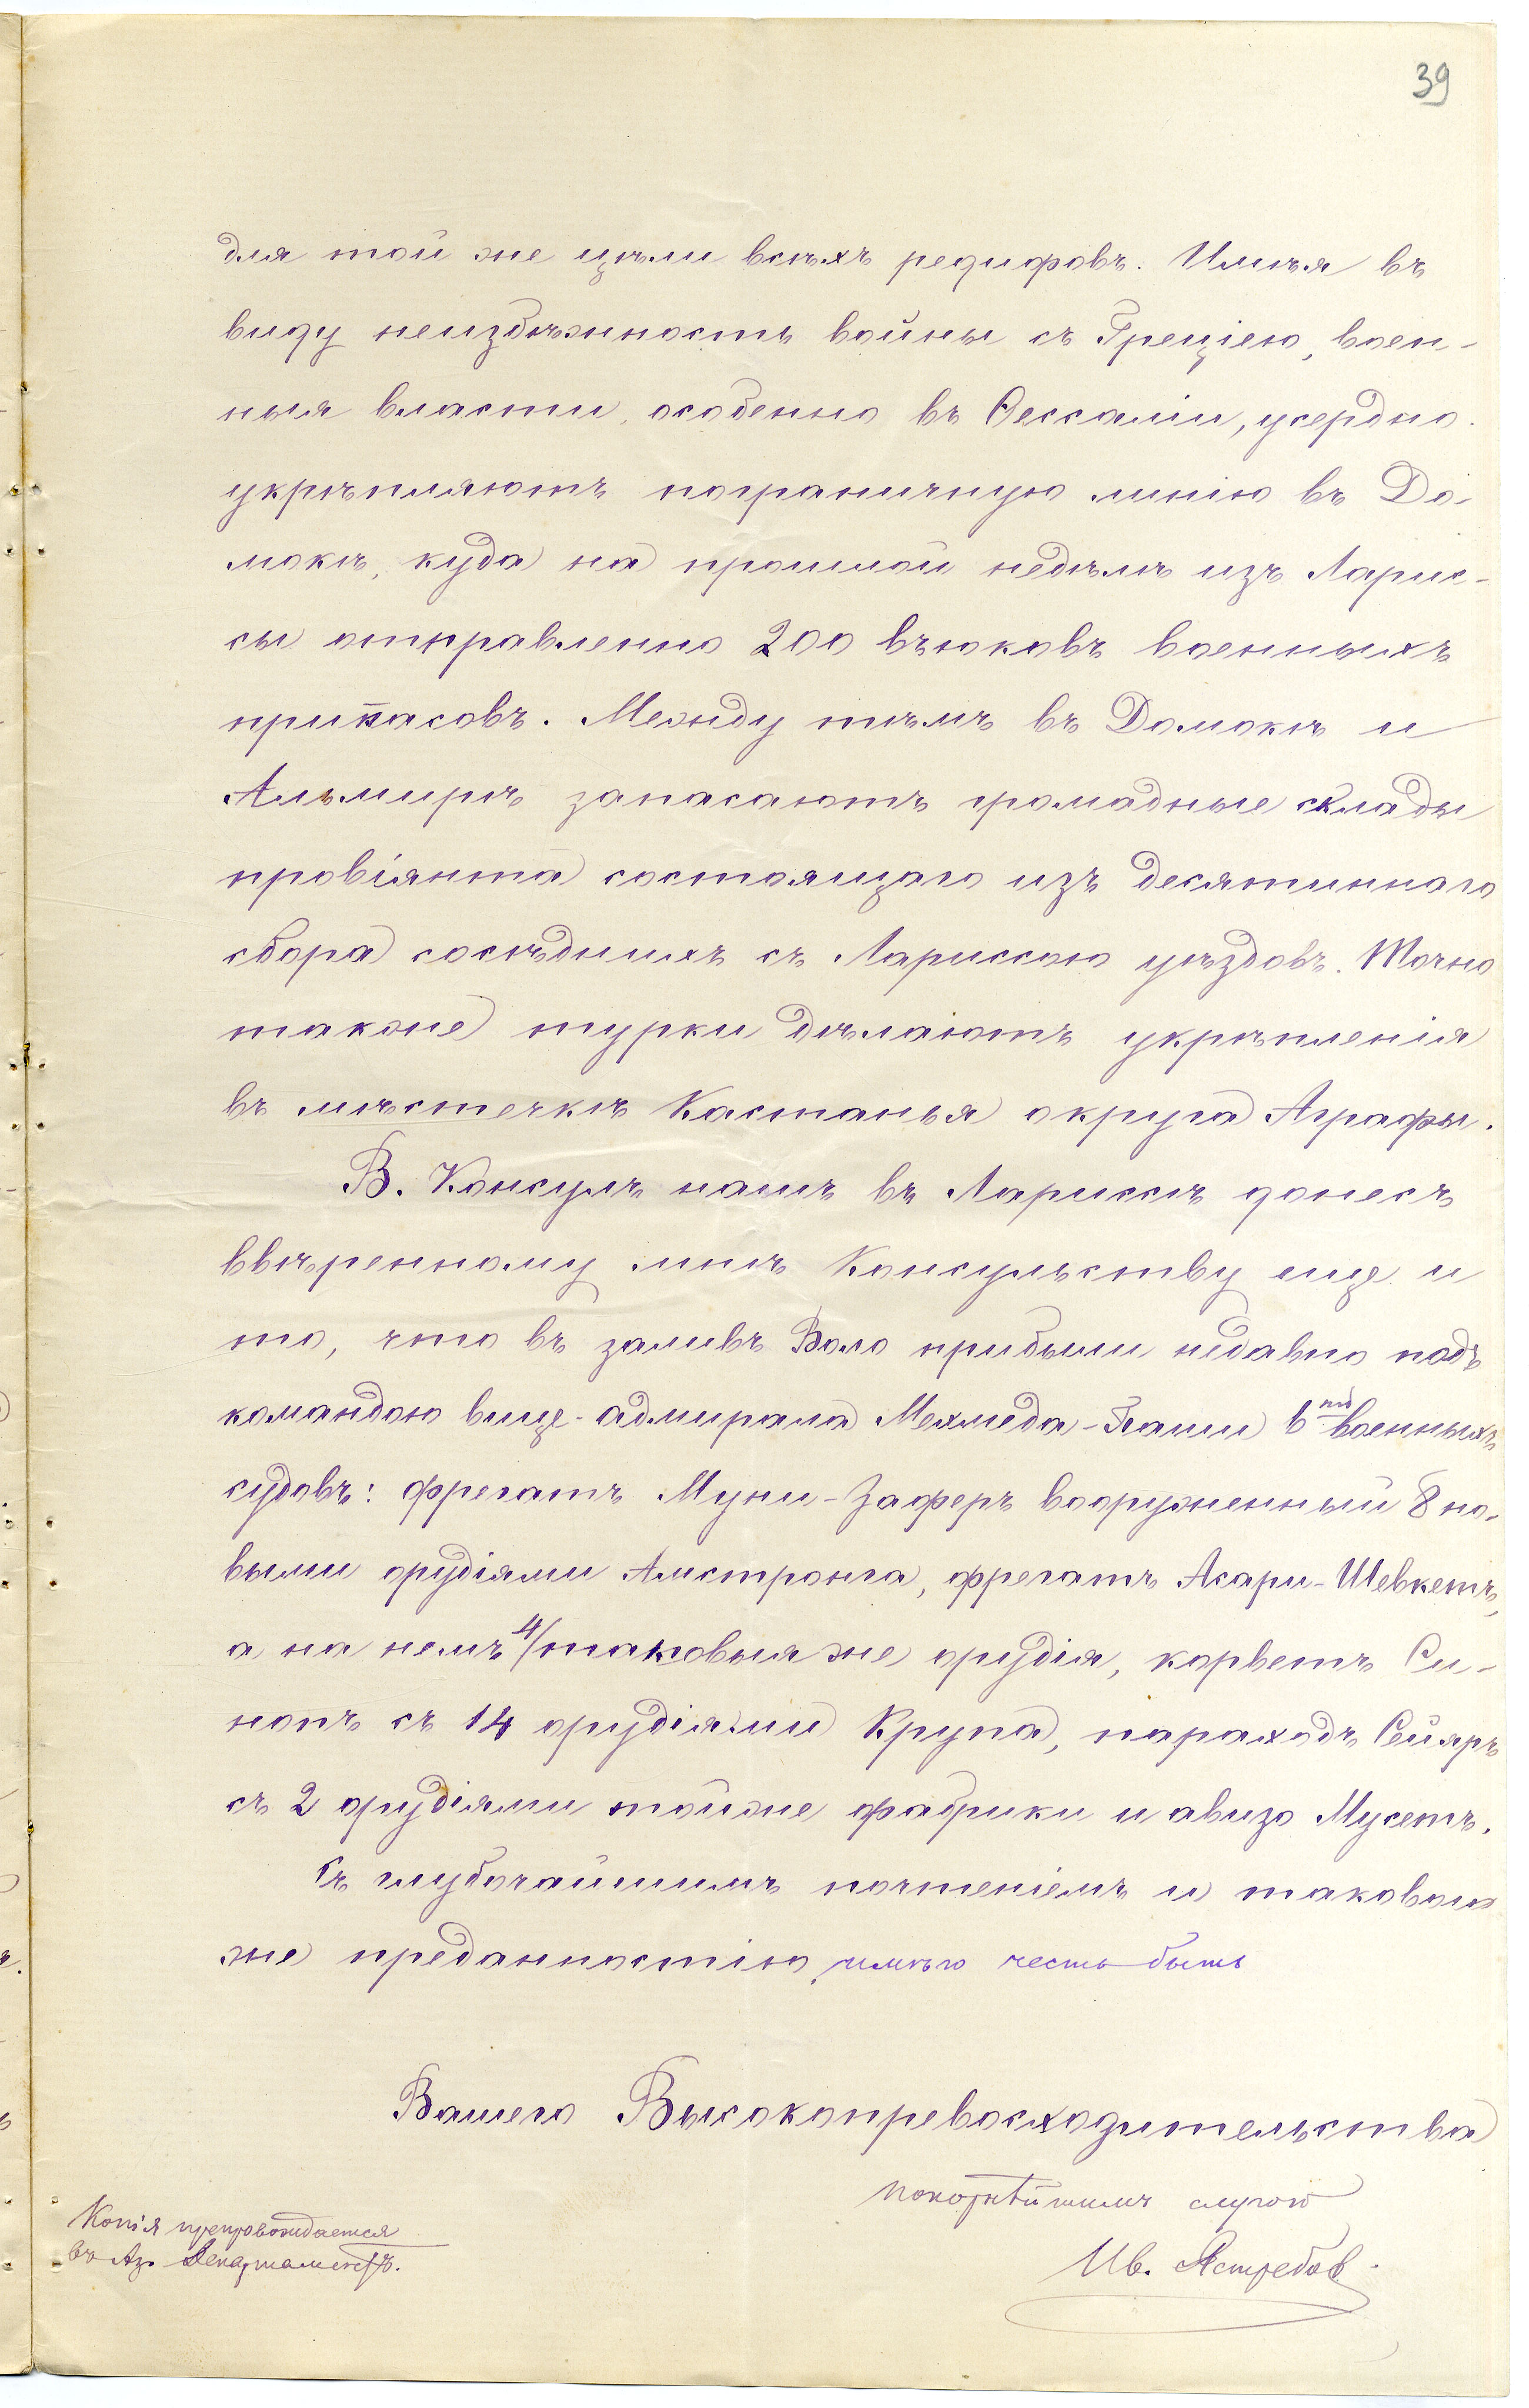 39
для той же цѣли всѣхъ редифовъ. Имѣя въ
виду неизбѣжность войны съ Греціею, воен-
ныя власти, особенно въ Ѳессаліи, усердно
укрѣпляютъ пограничную линію въ До-
мокѣ, куда на прошлой недѣлѣ изъ Ларис-
сы отправленно 200 вьюковъ военныхъ
припасовъ. Между тѣмъ въ Домокѣ и
Альмирѣ запасаютъ громадные склады
провіянта состоящаго изъ десятиннаго
сбора сосѣднихъ съ Лариссою уѣздовъ. Точно
также турки дѣлаютъ укрѣпленія
въ мѣстечкѣ Кастанья округа Аграфы.
В. Консулъ нашъ въ Лариссѣ донесъ
ввѣренному мнѣ Консульству еще и
то, что въ заливъ Воло прибыли недавно подъ
командою вице-адмирала Мехмеда-Паши 6 военныхъ
судовъ: фрегатъ Муни-Заферъ вооруженный 8 но-
выми орудіями Амстронга, фрегатъ Асари-Шевкетъ,
а на немъ 4 таковыя же орудія, корветъ Си-
нопъ съ 14 орудіями Крупа, параходъ Сейяръ
съ 2 орудіями тойже фабрики и авизо Мусетъ.
Съ глубочайшимъ почтеніемъ и таковою
же преданностію имѣю честь быть
Вашего Высокопревосходительства
покорнѣйшимъ слугою
Ив. Ястребов
Копія препровождается
въ Аз. Департаментъ.